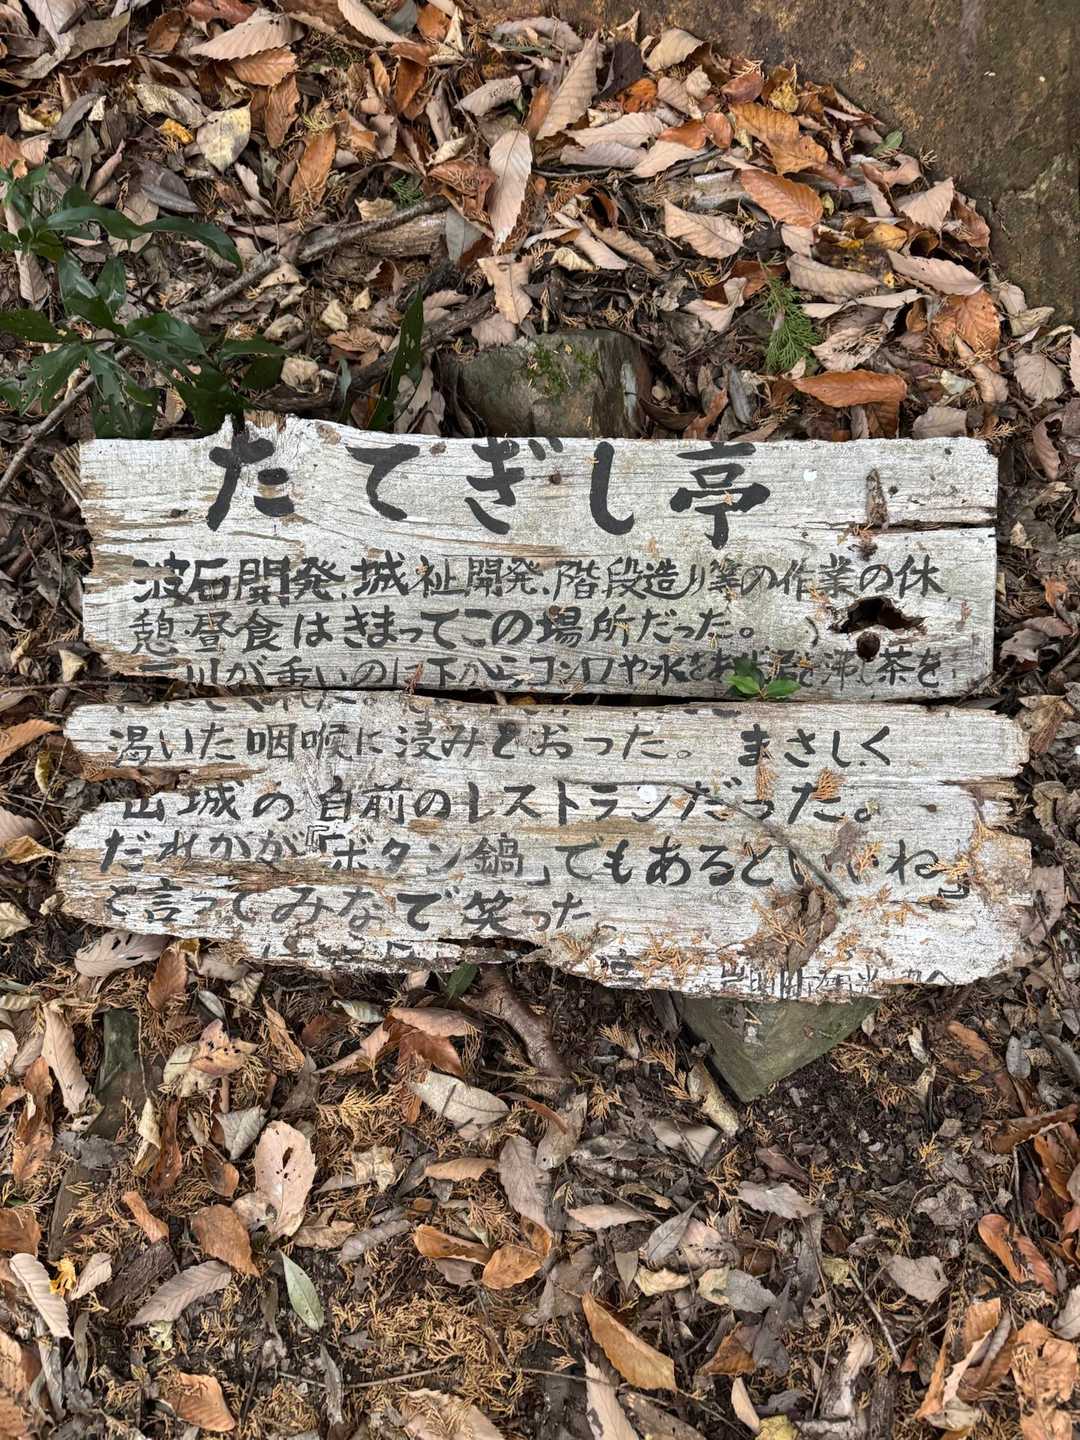 たてぎし亭
波石開発、城祉開発、階段造り等の作業の休
憩昼食はきまってこの場所だった。
川が重いのに下からコンロや水を 茶を
渇いた咽喉に浸みとおった。まさしく
山城の自前のレストランだった。
だれかが『「ボタン鍋」でもあるといいね』
と言ってみなで笑った。